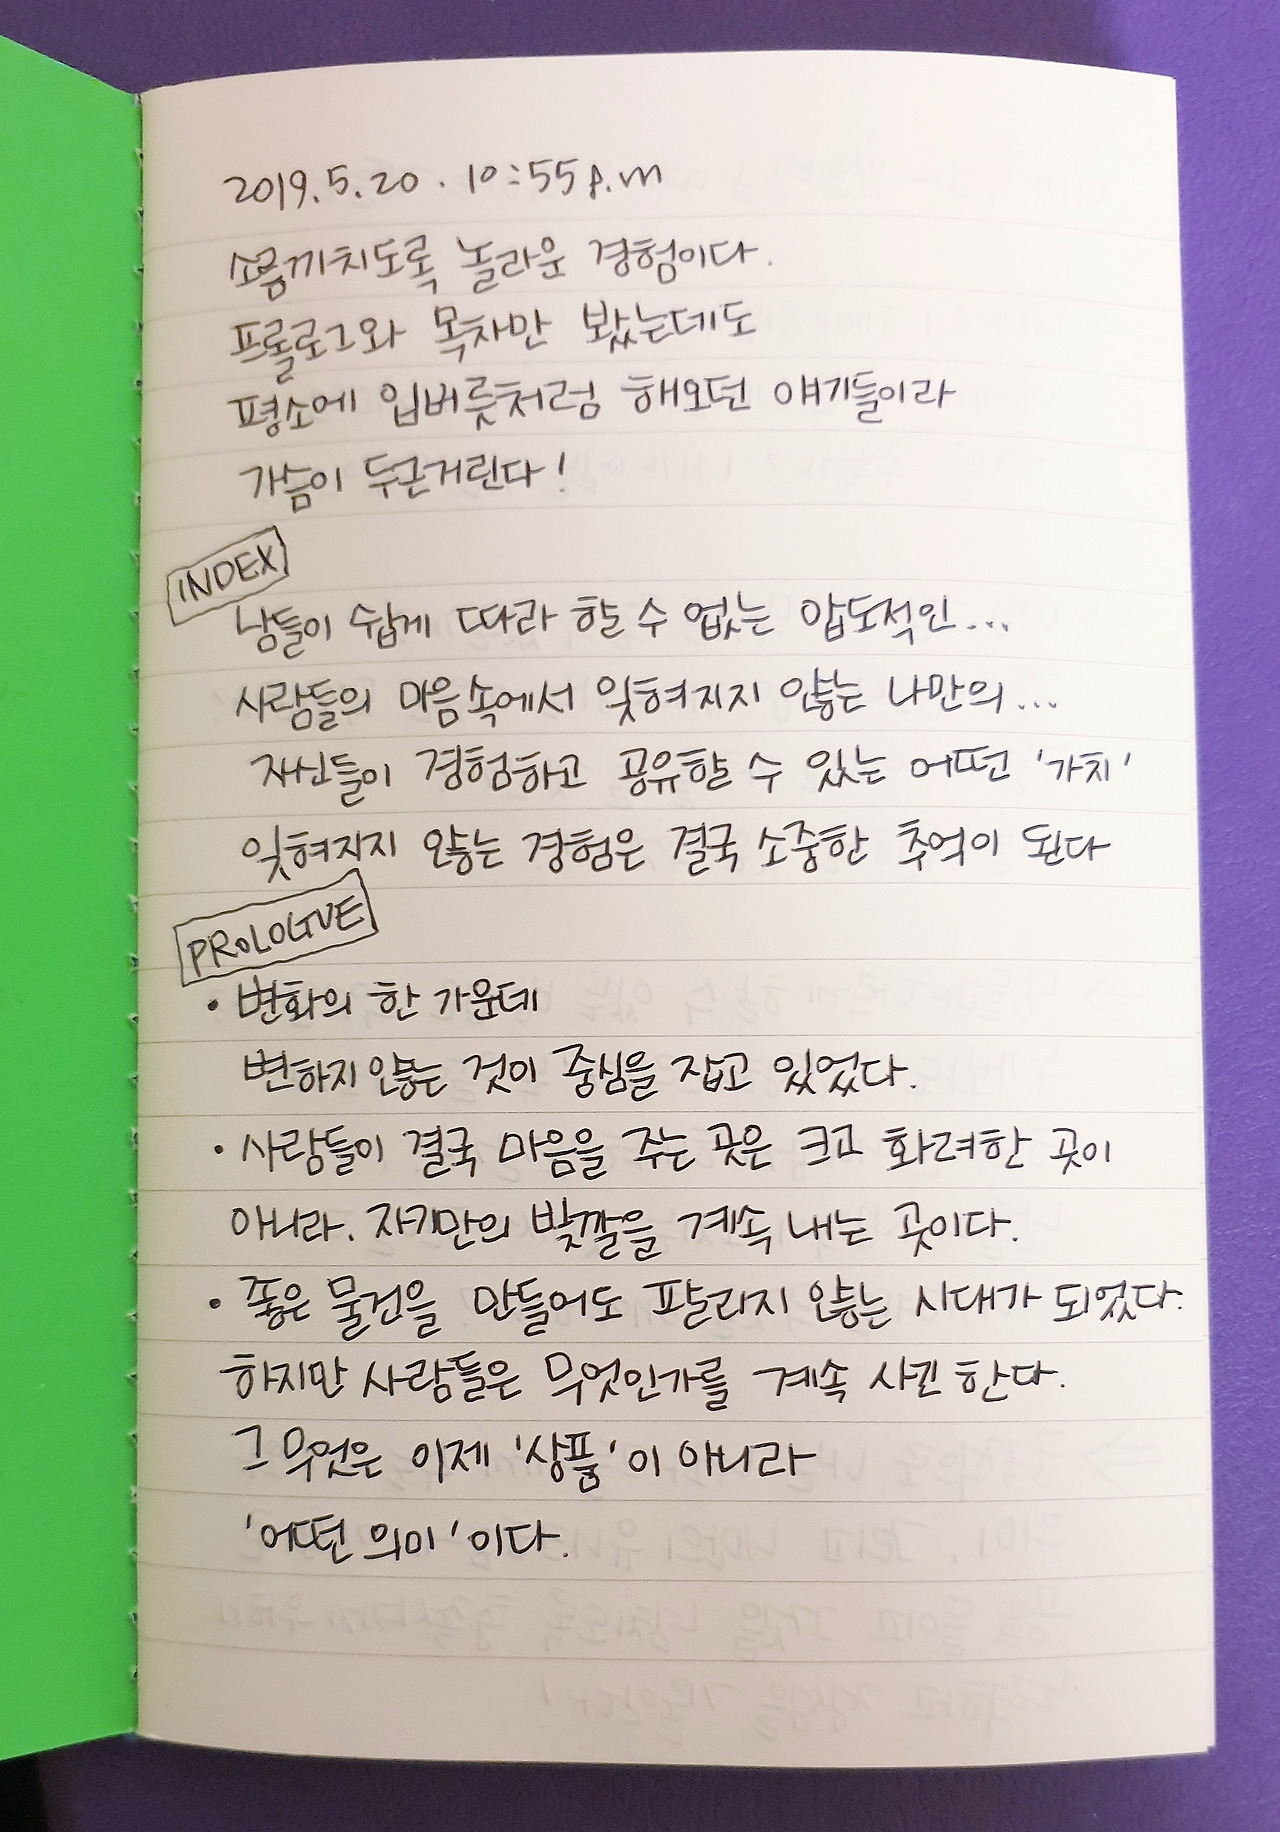 2019.5.20. 10:55 p.m
소름끼치도록 놀라운 경험이다.
프롤로그와 목차만 봤는데도
평소에 입버릇처럼 해오던 얘기들이라
가슴이 두근거린다!
INDEX
남들이 쉽게 따라 할 수 없는 압도적인...
사람들의 마음속에서 잊혀지지 않는 나만의...
자신들이 경험하고 공유할 수 있는 어떤 '가치'
잊혀지지 않는 경험은 결국 소중한 추억이 된다
PROLOGUE
• 변화의 한 가운데
변하지 않는 것이 중심을 잡고 있었다.
• 사람들이 결국 마음을 주는 곳은 크고 화려한 곳이
아니라. 자기만의 빛깔을 계속 내는 곳이다.
• 좋은 물건을 만들어도 팔리지 않는 시대가 되었다.
하지만 사람들은 무엇인가를 계속 사긴 한다.
그 무엇은 이제 '상품'이 아니라
'어떤 의미'이다.